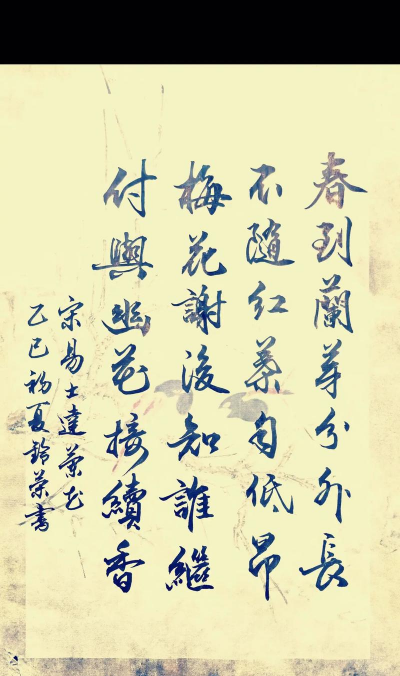 春到蘭芽分外長
不隨紅葉自低昂
梅花謝後知誰繼
付與幽花接續香
宋易士達蘭花
乙巳初夏鈴榮書